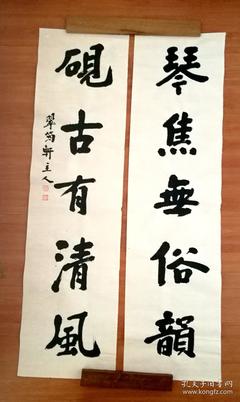 琴焦無俗韻
硯古有清風
翠筠軒主人
孔夫子旧书网